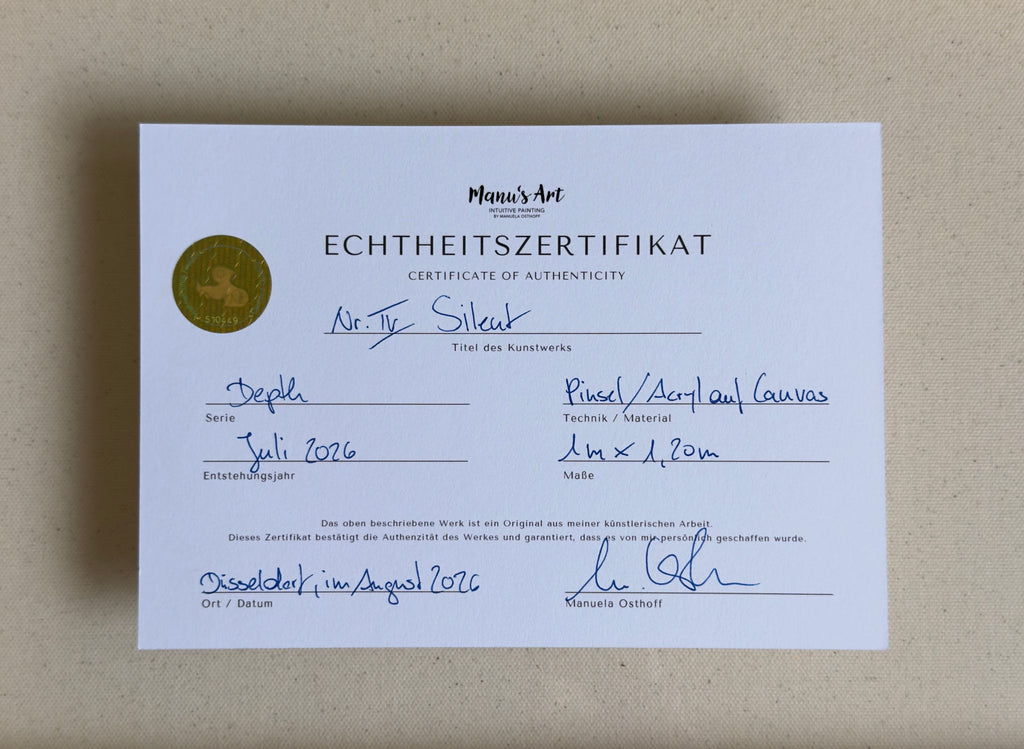 Manu's Art
INTUITIVE PAINTING
BY MANUELA OSTHOFF
ECHTHEITSZERTIFIKAT
CERTIFICATE OF AUTHENTICITY
Nr. IV Silent
Titel des Kunstwerks
Depth
Serie
Pinsel/Acryl auf Canvas
Technik / Material
Juli 2026
Entstehungsjahr
1m x 1,20m
Maße
Das oben beschriebene Werk ist ein Original aus meiner künstlerischen Arbeit.
Dieses Zertifikat bestätigt die Authenzität des Werkes und garantiert, dass es von mir persönlich geschaffen wurde.
Düsseldorf, im August 2026
Ort / Datum
Manuela Osthoff